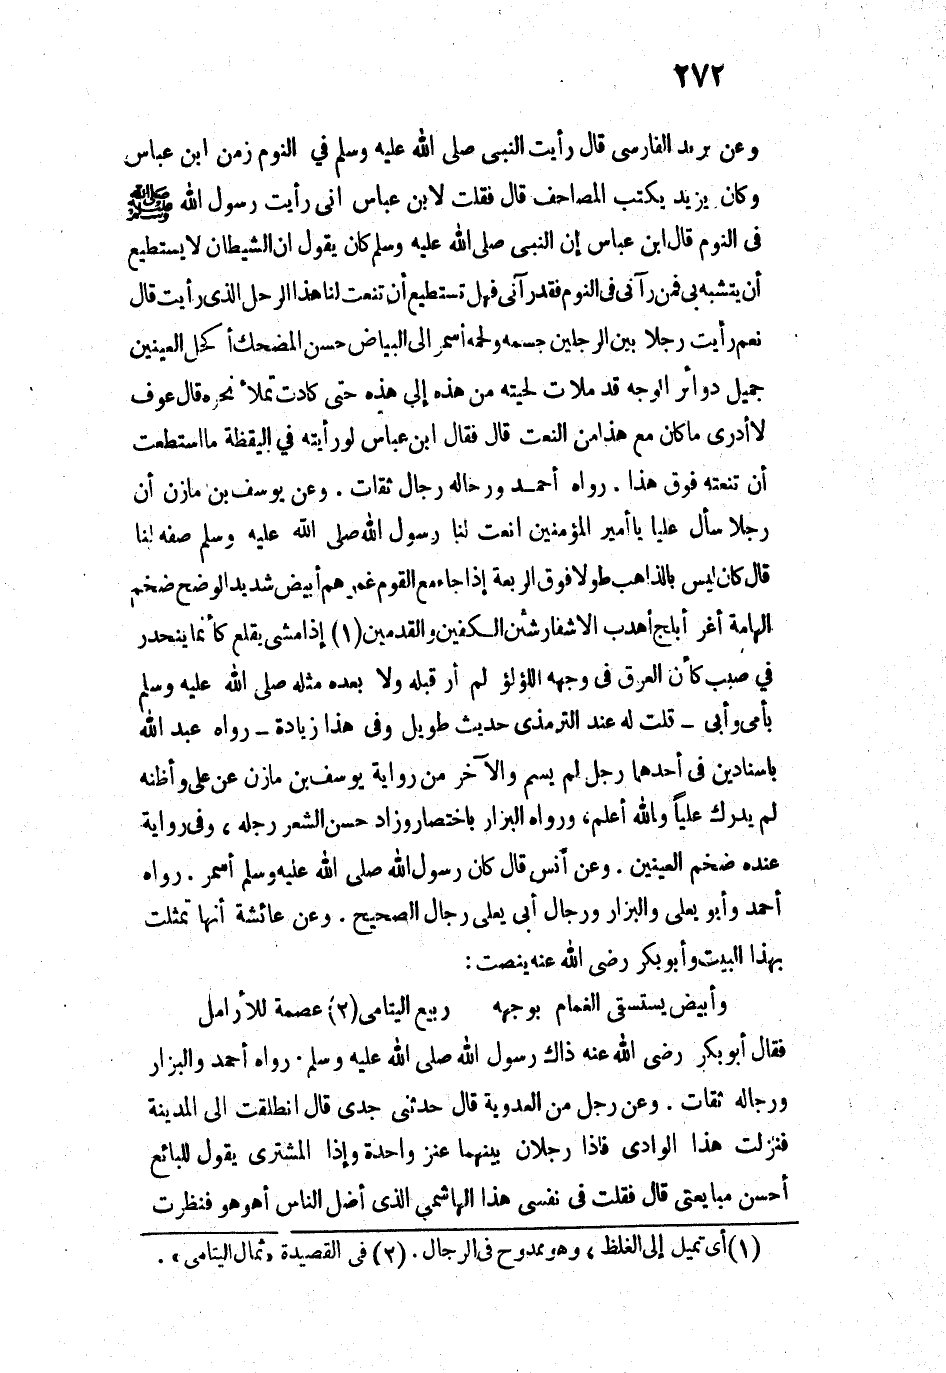 ٢٧٢
وعن يزيد الفارسى قال رأيت النبى صلى الله عليه وسلم في النوم زمن ابن عباس
وكان يزيد يكتب المصاحف قال فقلت لابن عباس انى رأيت رسول الله ﷺ
فى النوم قال ابن عباس إن النبى صلى الله عليه وسلم كان يقول ان الشيطان لا يستطيع
أن يتشبه بى فمن رآنى فى النوم فقد رآنى فهل تستطيع أن تنعت لنا هذا الرجل الذى رأيت قال
نعم رأيت رجلا بين الرجلين جسمه ولحمه أسمر الى البياض حسن المضحك أكحل العينين
جميل دوائر الوجه قد ملات لحيته من هذه إلي هذه حتى كادت تملأ نحره قال عوف
لا أدرى ما كان مع هذا من النعت قال فقال ابن عباس لو رأيته في اليقظة ما استطعت
أن تنعته فوق هذا . رواه أحمد ورجاله رجال ثقات . وعن يوسف بن مازن أن
رجلا سأل عليا يا أمير المؤمنين انعت لنا رسول الله صلى الله عليه وسلم صفه لنا
قال كان ليس بالذاهب طولا فوق الربعة إذا جاء مع القوم غمرهم أبيض شديد الوضح ضخم
الهامة أغر أبلج أهدب الاشفار شثن الكفين والقدمين (١) إذا مشى يقلع كأنما ينحدر
في صبب كأن العرق فى وجهه اللؤلؤ لم أر قبله ولا بعده مثله صلى الله عليه وسلم
بأمى وأبى – قلت له عند الترمذى حديث طويل وفى هذا زيادة – رواه عبد الله
باسنادين فى أحدهما رجل لم يسم والآخر من رواية يوسف بن مازن عن على وأظنه
لم يدرك علياً والله أعلم، ورواه البزار باختصار وزاد حسن الشعر رجله ، وفى رواية
عنده ضخم العينين . وعن أنس قال كان رسول الله صلى الله عليه وسلم أسمر . رواه
أحمد وأبو يعلى والبزار ورجال أبى يعلى رجال الصحيح . وعن عائشة أنها تمثلت
بهذا البيت وأبو بكر رضى الله عنه ينصت :
وأبيض يستسقى الغمام بوجهه ربيع اليتامى (٢) عصمة للأرامل
فقال أبو بكر رضى الله عنه ذاك رسول الله صلى الله عليه وسلم . رواه أحمد والبزار
ورجاله ثقات . وعن رجل من العدوية قال حدثنى جدى قال انطلقت الى المدينة
فنزلت هذا الوادى فاذا رجلان بينهما عنز واحدة وإذا المشترى يقول للبائع
أحسن مبايعتى قال فقلت فى نفسى هذا الهاشمي الذى أضل الناس أهو هو فنظرت
(١) أى تميل إلى الغلظ ، وهو ممدوح فى الرجال . (٢) فى القصيدة « ثمال اليتامى » .